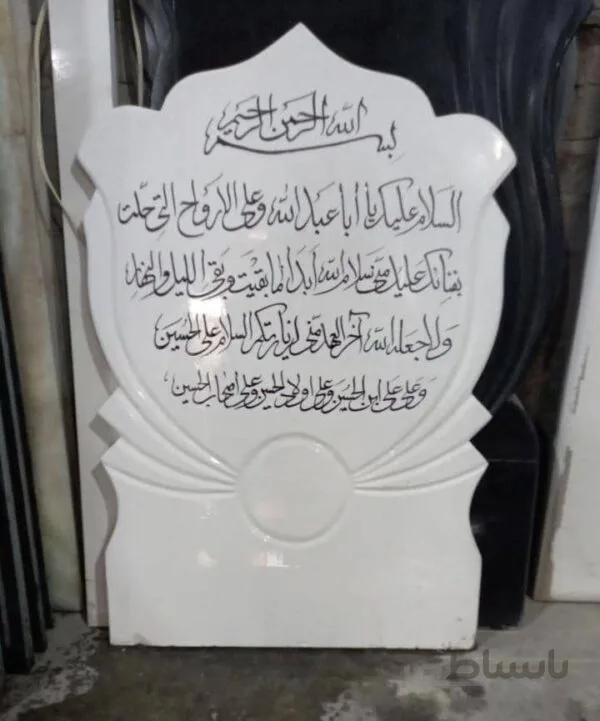 بسم الله الرحمن الرحیم
السلام علیک یا أبا عبد الله وعلی الارواح التی حلت
بفنائک علیک منی سلام الله أبدا ما بقیت و بقی اللیل والنهار
ولا جعله الله آخر العهد منی لزیارتکم السلام علی الحسین
وعلی علی ابن الحسین وعلی اولاد الحسین وعلی اصحاب الحسین
باسباط